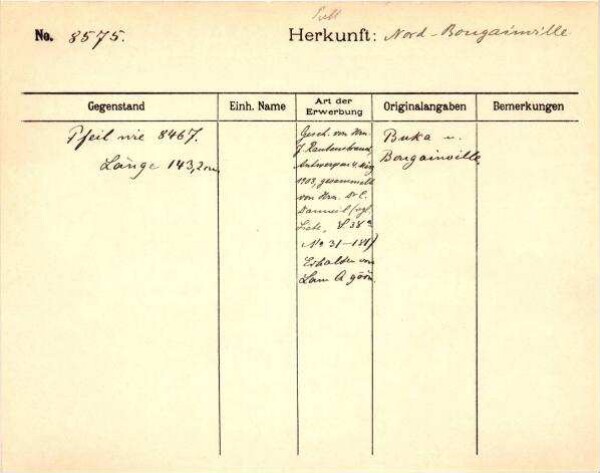 No. 8575.
Herkunft: Nord-Bougainville
Gegenstand
Einh. Name
Art der
Erwerbung
Originalangaben
Bemerkungen
Pfeil wie 8467.
Länge 143,2 cm
Gesch. von Hrn.
J. Rautenstrauch,
Antwerpen 4. März
1908, gesammelt
von Hrn. Dr E.
Liste, S 38
No 31-187)
Erhalten von
Buka u.
Bougainville